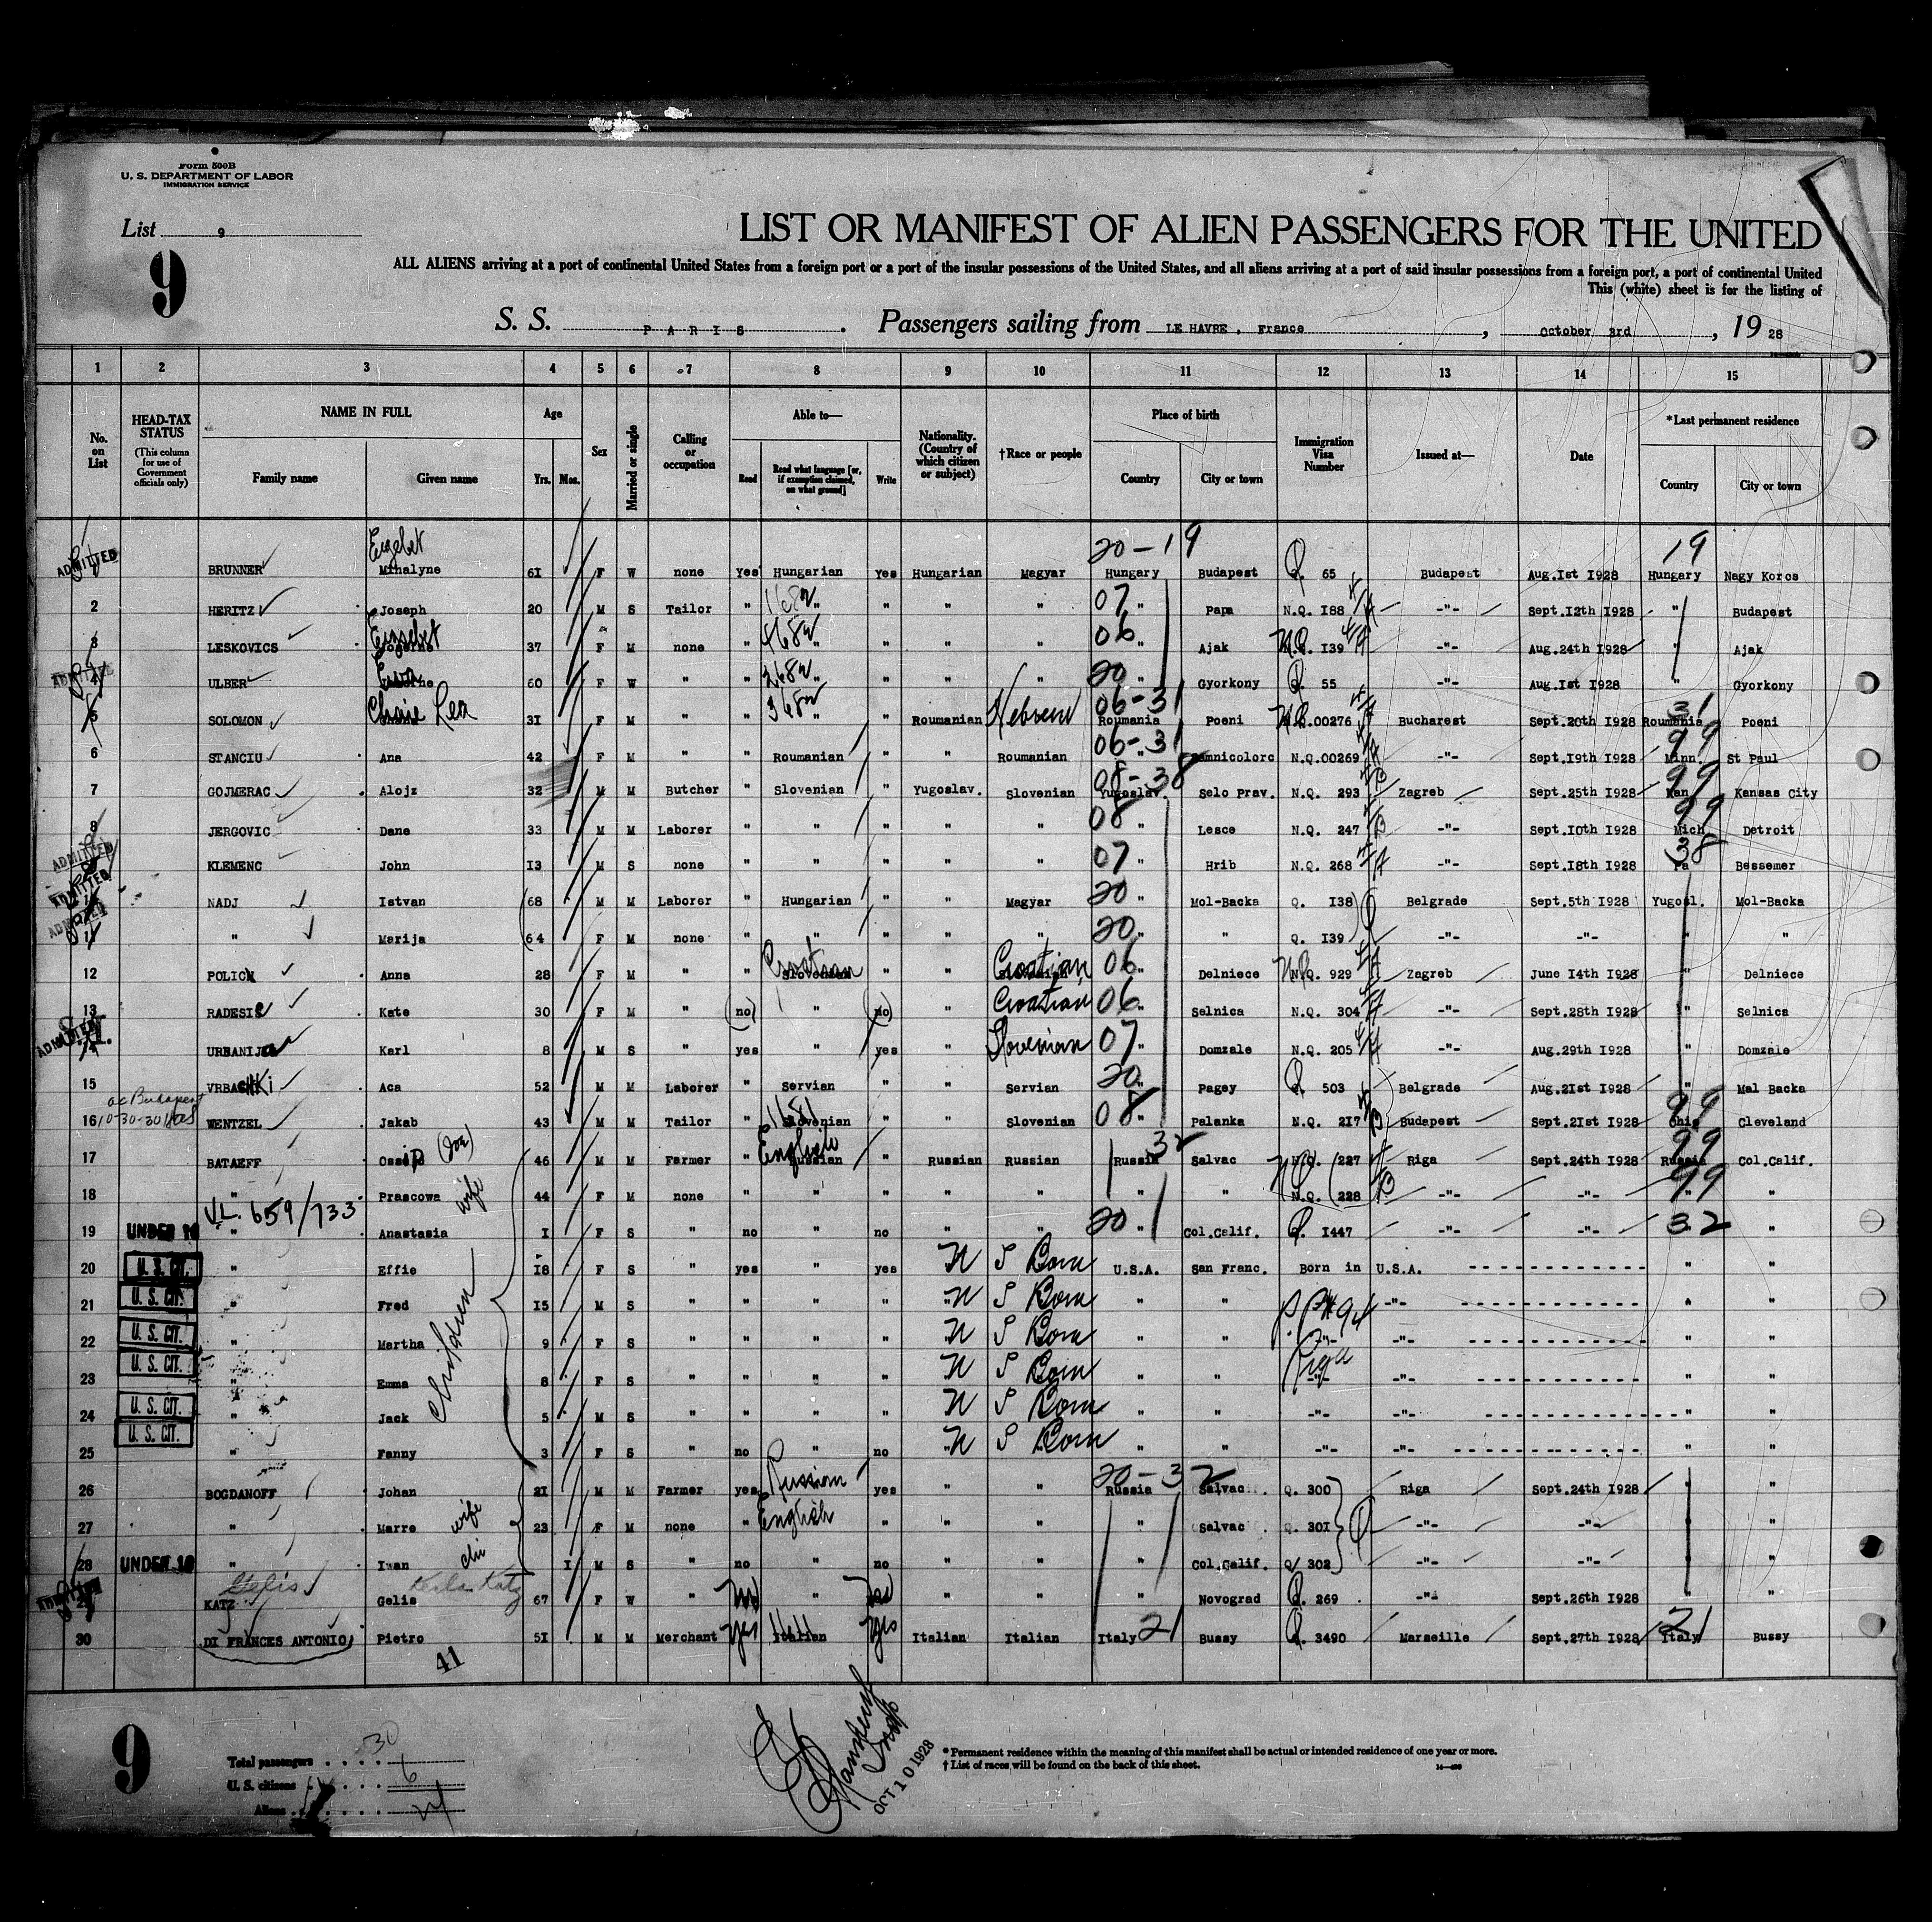 Form 500B
U. S. DEPARTMENT OF LABOR
IMMIGRATION SERVICE
List 9
9
LIST OR MANIFEST OF ALIEN PASSENGERS FOR THE UNITED
ALL ALIENS arriving at a port of continental United States from a foreign port or a port of the insular possessions of the United States, and all aliens arriving at a port of said insular possessions from a foreign port, a port of continental United
This (white) sheet is for the listing of
S. S. PARIS. Passengers sailing from LE HAVRE, France, October 3rd, 19 28
1 2 3 4 5 6 7 8 9 10 11 12 13 14 15
No. on List
HEAD-TAX STATUS (This column for use of Government officials only)
NAME IN FULL Family name Given name
Age Yrs. Mos.
Sex
Married or single
Calling or occupation
Able to— Read Read what language [or, if exemption claimed, on what ground] Write
Nationality. (Country of which citizen or subject)
†Race or people
Place of birth Country City or town
Immigration Visa Number
Issued at—
Date
*Last permanent residence Country City or town
20-19 19
ADMITTED BRUNNER Mihalyne 61 F W none Yes Hungarian Yes Hungarian Magyar Hungary Budapest Q. 65 Budapest Aug.1st 1928 Hungary Nagy Koros
2 HERITZ Joseph 20 M S Tailor " " " " " 07 " Papa N.Q. 188 -"- Sept.12th 1928 " Budapest
3 LESKOVICS 37 F M none " " " " " 06 " Ajak N.Q. 139 -"- Aug.24th 1928 " Ajak
ULBER 60 F W " " " " " " 20 " Gyorkony Q. 55 -"- Aug.1st 1928 " Gyorkony
5 SOLOMON Lea 31 F M " " " " Roumanian Hebrew 06-31 Roumania Poeni N.Q.00276 Bucharest Sept.20th 1928 31 Roumania Poeni
6 STANCIU Ana 42 F M " " Roumanian " " Roumanian 06-31 " N.Q.00269 -"- Sept.19th 1928 99 Minn. St Paul
7 GOJMERAC Alojz 32 M M Butcher " Slovenian " Yugoslav. Slovenian 08-38 Yugoslav. Selo Prav. N.Q. 293 Zagreb Sept.25th 1928 99 Kan Kansas City
8 JERGOVIC Dane 33 M M Laborer " " " " " 08 " Lesce N.Q. 247 -"- Sept.10th 1928 99 Mich Detroit
ADMITTED KLEMENC John 13 M S none " " " " " 07 " Hrib N.Q. 268 -"- Sept.18th 1928 38 Pa Bessemer
ADMITTED NADJ Istvan 68 M M Laborer " Hungarian " " Magyar 20 " Mol-Backa Q. 138 Belgrade Sept.5th 1928 Yugosl. Mol-Backa
ADMITTED 11 " Marija 64 F M none " " " " " 20 " " Q. 139 -"- -"- " "
12 POLICH Anna 28 F M " " Croatian " " Croatian 06 " Delniece N.Q. 929 Zagreb June 14th 1928 " Delniece
13 RADESIC Kate 30 F M " (no) " (no) " Croatian 06 " Selnica N.Q. 304 -"- Sept.28th 1928 " Selnica
ADMITTED URBANIJA Karl 8 M S " yes " yes " Slovenian 07 " Domzale N.Q. 205 -"- Aug.29th 1928 " Domzale
15 Aca 52 M M Laborer " Servian " " Servian 20 " Pagey Q. 503 Belgrade Aug.21st 1928 " Mal Backa
10-30-30
16 WENTZEL Jakab 43 M M Tailor " Slovenian " " Slovenian 08 " Palanka N.Q. 217 Budapest Sept.21st 1928 99 Ohio Cleveland
17 BATAEFF (Joe) 46 M M Farmer " English Russian " Russian Russian 32 Russia Salvac N.Q. 227 Riga Sept.24th 1928 99 Russia Col.Calif.
18 " Prascowa wife 44 F M none " " " " " " " N.Q. 228 -"- -"- 99 " "
VL. 659/733
19 UNDER 16 " Anastasia 1 F S " no " no " " 20 " Col.Calif. Q. 1447 -"- -"- 32 "
children
20 U. S. CIT. " Effie 18 F S " yes " yes N S Born U.S.A. San Franc. Born in U.S.A. " "
21 U. S. CIT. " Fred 15 M S " " " " N S Born " " -"- " "
P.P.# 94
22 U. S. CIT. " Martha 9 F S " " " " N S Born " " -"- -"- " "
Riga
23 U. S. CIT. " Emma 8 F S " " " " N S Born " " -"- -"- " "
24 U. S. CIT. " Jack 5 M S " " " " N S Born " " -"- -"- " "
25 U. S. CIT. " Fanny 3 F S " no " no N S Born " " -"- -"- " "
26 BOGDANOFF Johan 21 M M Farmer yes Russian yes " " 20-32 Russia Salvac Q. 300 Riga Sept.24th 1928 " "
27 " Marre wife 23 F M none " English " " " " Salvac Q. 301 -"- -"- " "
28 UNDER 16 " Iwan 1 M S " no " no " " " Col.Calif. Q. 302 -"- -"- " "
Gelis Katz
KATZ Gelis 67 F W " " " " " Novograd Q. 269 -"- Sept.26th 1928 " "
30 DI FRANCES ANTONIO Pietro 51 M M Merchant yes Italian yes Italian Italian Italy 21 Bussy Q. 3490 Marseille Sept.27th 1928 21 Italy Bussy
41
9
Total passengers . . . . 30
U. S. citizens . . . . 6
Aliens . . . . 24
OCT 10 1928
* Permanent residence within the meaning of this manifest shall be actual or intended residence of one year or more.
† List of races will be found on the back of this sheet.